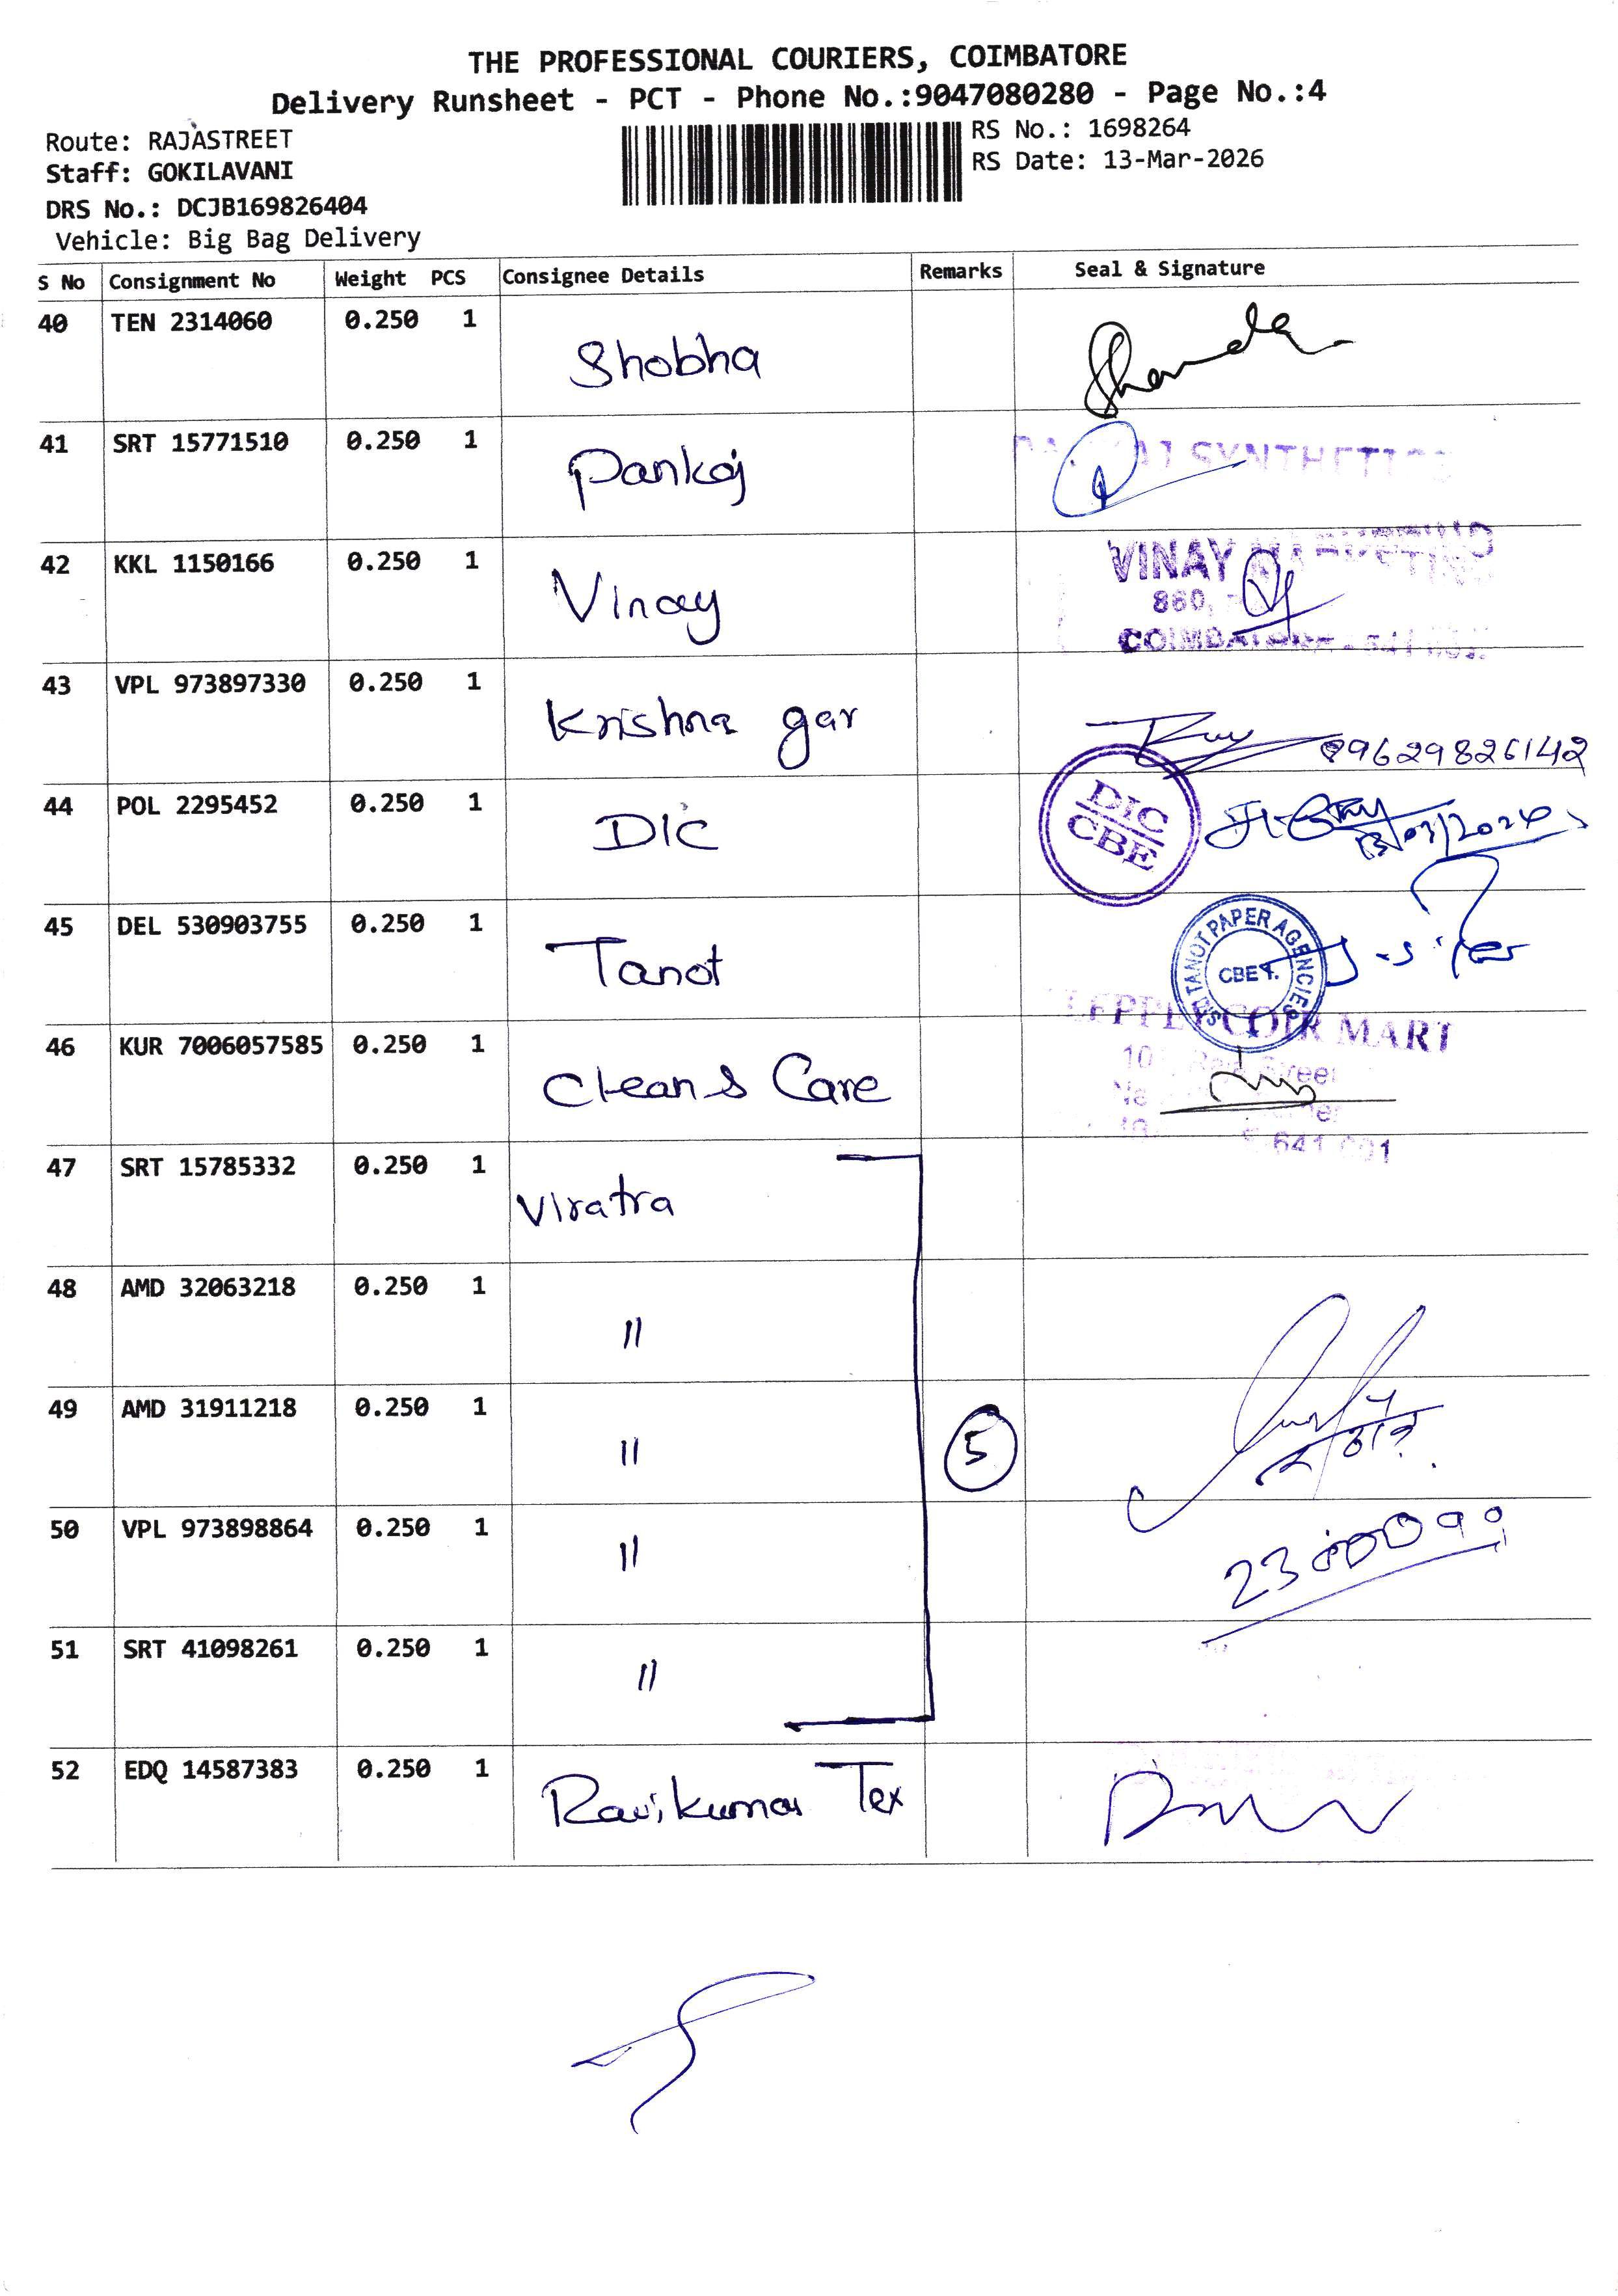 THE PROFESSIONAL COURIERS, COIMBATORE
Delivery Runsheet - PCT - Phone No.:9047080280 - Page No.:4
Route: RAJASTREET
RS No.: 1698264
Staff: GOKILAVANI
RS Date: 13-Mar-2026
DRS No.: DCJB169826404
Vehicle: Big Bag Delivery
S No Consignment No Weight PCS Consignee Details Remarks Seal & Signature
40 TEN 2314060 0.250 1 Shobha
41 SRT 15771510 0.250 1 Pankaj SYNTHETICS
42 KKL 1150166 0.250 1 Vinay VINAY MARKETING
860,
COIMBATORE
43 VPL 973897330 0.250 1 Krishna gar
44 POL 2295452 0.250 1 DIC DIC CBE
45 DEL 530903755 0.250 1 Tanot SRI TANOT PAPER AGENCIES CBE
46 KUR 7006057585 0.250 1 Clean & Care COIR MART
641 001
47 SRT 15785332 0.250 1 Viratra
48 AMD 32063218 0.250 1 "
49 AMD 31911218 0.250 1 " 5
50 VPL 973898864 0.250 1 "
51 SRT 41098261 0.250 1 "
52 EDQ 14587383 0.250 1 Ravikumar Tex